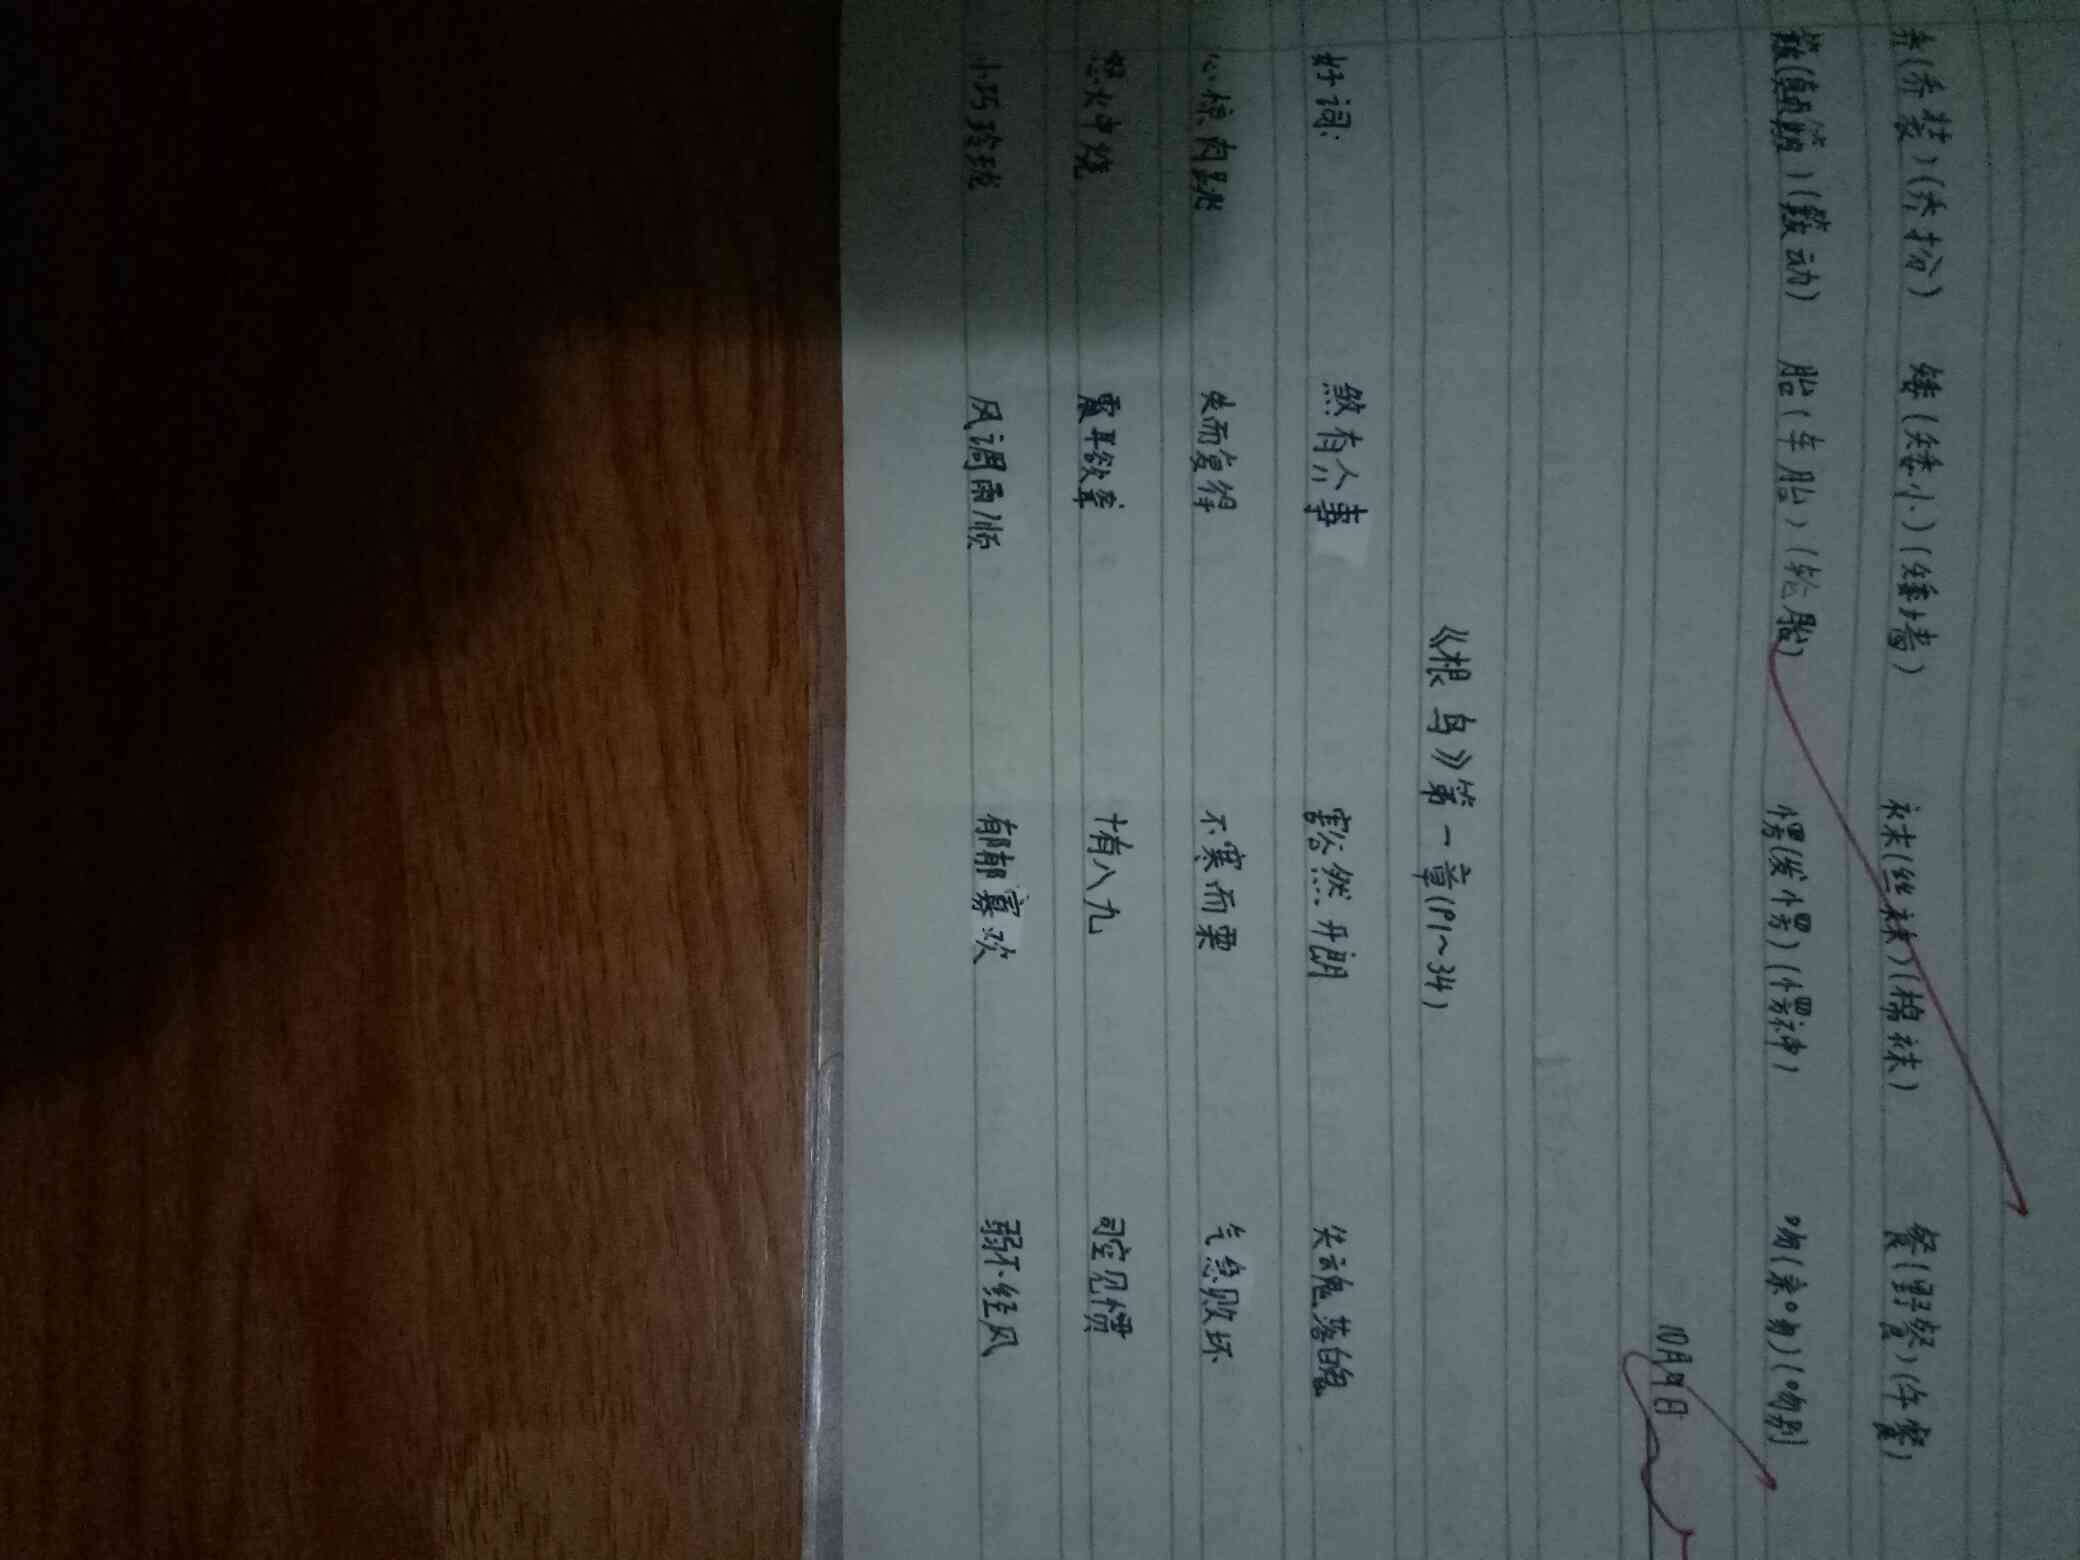 乔(乔装)(乔扮) 矮(矮小)(矮墙) 袜(丝袜)(棉袜) 餐(野餐)(午餐)
簸(颠簸)(簸动) 胎(车胎)(轮胎) 愣(发愣)(愣神) 吻(亲吻)(吻别)
10月9日
《根鸟》第一章(P1~34)
好词: 煞有介事 豁然开朗 失魂落魄
心惊肉跳 失而复得 不寒而栗 气急败坏
怒火中烧 震耳欲聋 十有八九 司空见惯
小巧玲珑 风调雨顺 郁郁寡欢 弱不经风